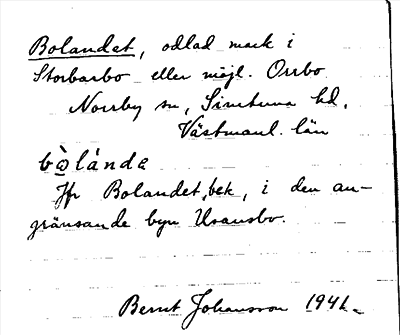 Bolandet, odlad mark i
Storbarbo eller möjl. Orrbo
Norrby sn, Simtuna hd,
Västmanl. län
bò̱lánde
Jfr Bolandet, bek, i den an-
gränsande byn Usansbo.
Bernt Johansson 1941.